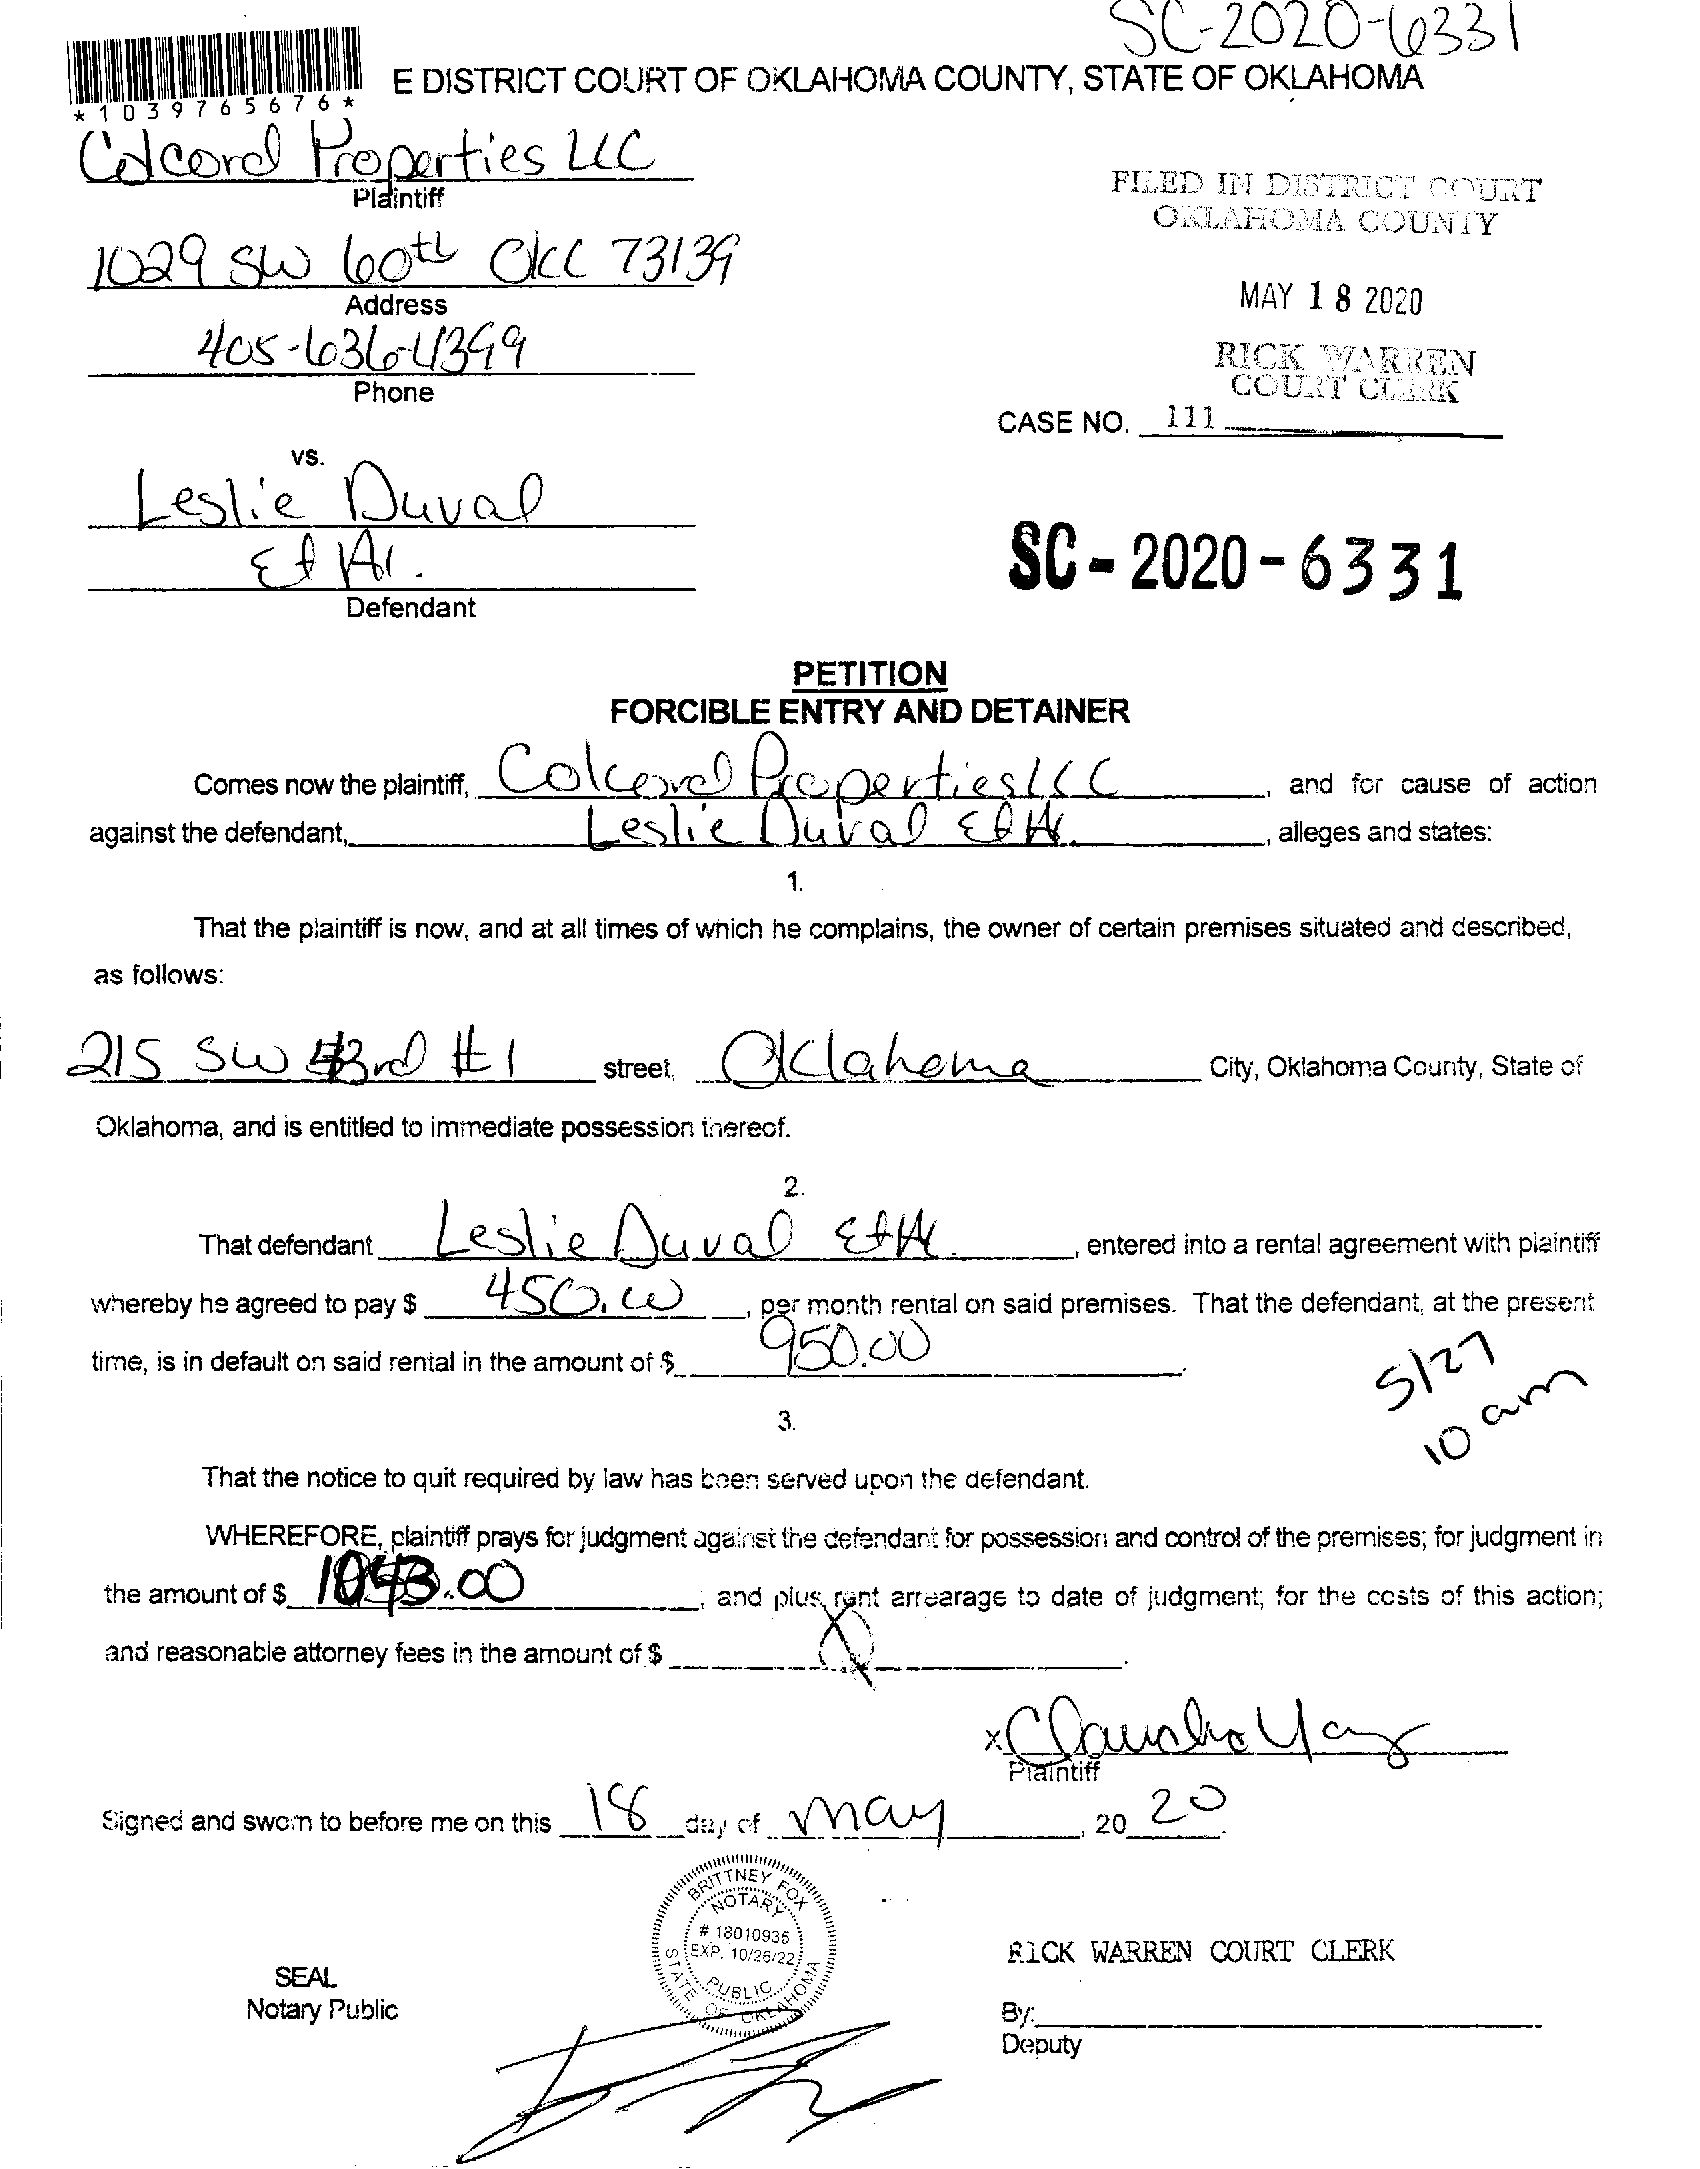 SC-2020-6331
*1039765676*
E DISTRICT COURT OF OKLAHOMA COUNTY, STATE OF OKLAHOMA
Colcord Properties LLC
Plaintiff
FILED IN DISTRICT COURT
OKLAHOMA COUNTY
1029 SW 60th OKC 73139
Address
MAY 18 2020
405-636-4399
Phone
RICK WARREN
COURT CLERK
CASE NO. 111
vs.
Leslie Duval
Et Al.
Defendant
SC-2020-6331
PETITION
FORCIBLE ENTRY AND DETAINER
Comes now the plaintiff, Colcord Properties LLC, and for cause of action
against the defendant, Leslie Duval Et Al., alleges and states:
1.
That the plaintiff is now, and at all times of which he complains, the owner of certain premises situated and described,
as follows:
215 SW 43rd #1 street, Oklahoma City, Oklahoma County, State of
Oklahoma, and is entitled to immediate possession thereof.
2.
That defendant Leslie Duval Et Al., entered into a rental agreement with plaintiff
whereby he agreed to pay $ 450.00, per month rental on said premises. That the defendant, at the present
time, is in default on said rental in the amount of $ 950.00.
5/27
10 am
3.
That the notice to quit required by law has been served upon the defendant.
WHEREFORE, plaintiff prays for judgment against the defendant for possession and control of the premises; for judgment in
the amount of $ 1043.00, and plus rent arrearage to date of judgment; for the costs of this action;
and reasonable attorney fees in the amount of $
x
Plaintiff
Signed and sworn to before me on this 18 day of May, 20 20
BRITTNEY FOX
NOTARY
# 18010936
EXP. 10/26/22
PUBLIC
STATE OF OKLAHOMA
SEAL
Notary Public
RICK WARREN COURT CLERK
By:
Deputy